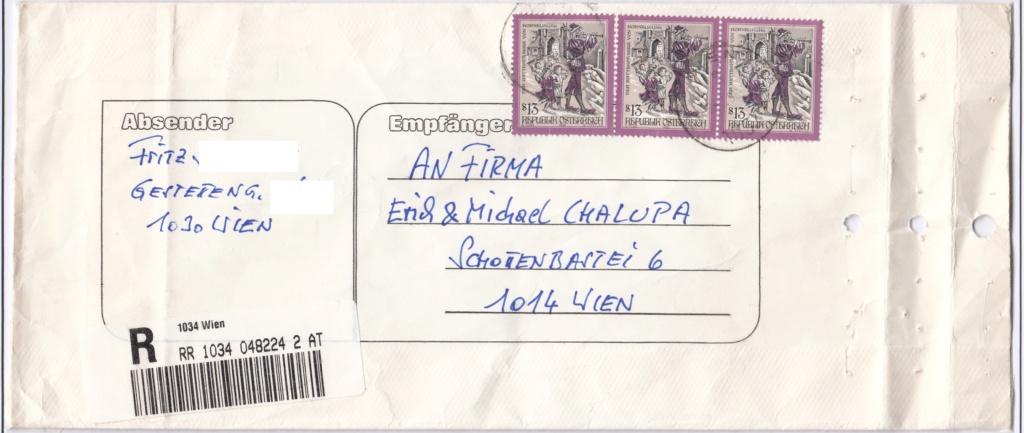 S13
REPUBLIK ÖSTERREICH
S13
REPUBLIK ÖSTERREICH
S13
REPUBLIK ÖSTERREICH
Absender
FRITZ
GESTETENG.
1030 WIEN
Empfänger
AN FIRMA
Erich & Michael CHALUPA
SCHOTENBASTEI 6
1014 WIEN
R
1034 Wien
RR 1034 048224 2 AT